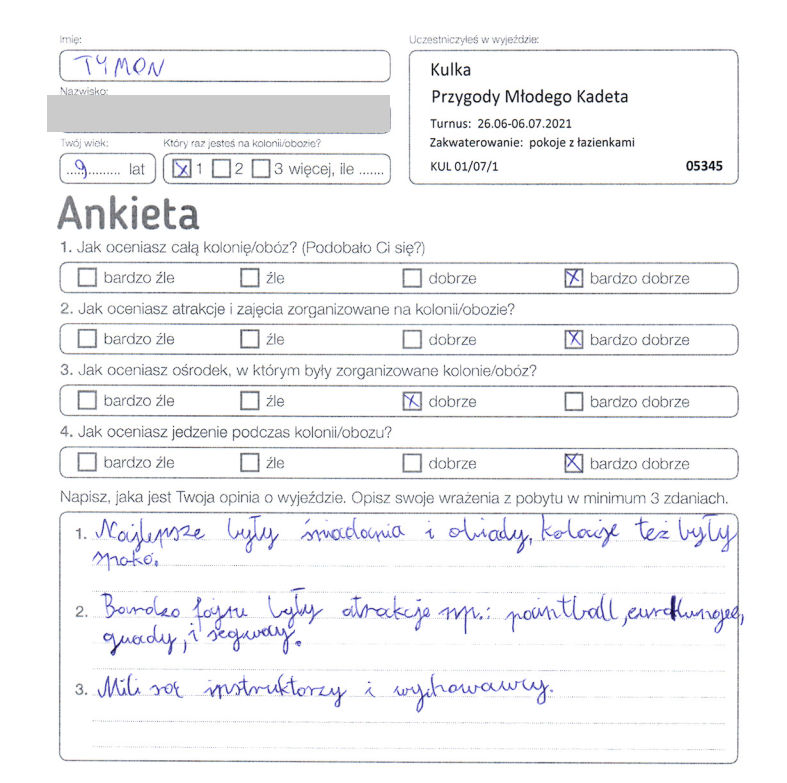 Imię:
TYMON
Nazwisko:
Twój wiek:
...9......... lat
Który raz jesteś na kolonii/obozie?
1 2 3 więcej, ile .......
Uczestniczyłeś w wyjeździe:
Kulka
Przygody Młodego Kadeta
Turnus: 26.06-06.07.2021
Zakwaterowanie: pokoje z łazienkami
KUL 01/07/1 05345
Ankieta
1. Jak oceniasz całą kolonię/obóz? (Podobało Ci się?)
bardzo źle źle dobrze bardzo dobrze
2. Jak oceniasz atrakcje i zajęcia zorganizowane na kolonii/obozie?
bardzo źle źle dobrze bardzo dobrze
3. Jak oceniasz ośrodek, w którym były zorganizowane kolonie/obóz?
bardzo źle źle dobrze bardzo dobrze
4. Jak oceniasz jedzenie podczas kolonii/obozu?
bardzo źle źle dobrze bardzo dobrze
Napisz, jaka jest Twoja opinia o wyjeździe. Opisz swoje wrażenia z pobytu w minimum 3 zdaniach.
1. Najlepsze były śniadania i obiady, kolacje też były
spoko.
2. Bardzo fajne były atrakcje np.: paintball,
quady, i segway.
3. Mili są instruktorzy i wychowawcy.